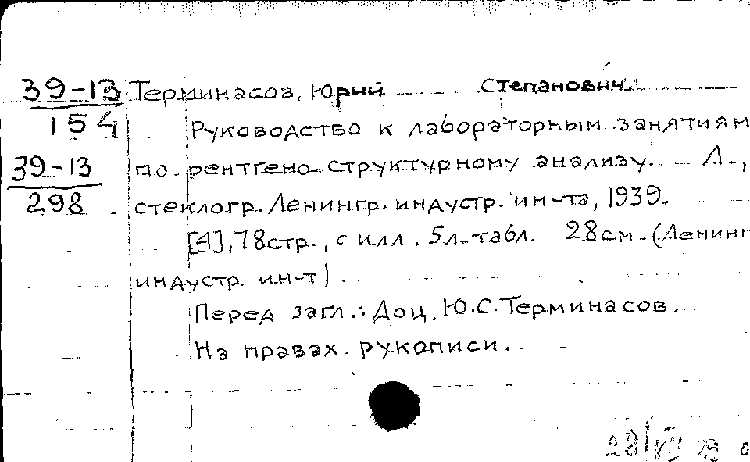 39-13 Терминасов, Юрий Степанович.
154 Руководство к лабораторным занятиям
39-13 по рентгено-структурному анализу. – Л.,
298 стеклогр. Ленингр. индустр. ин-та, 1939.
[4], 78 стр., с илл. 5 л. табл. 28 см. (Ленинг
индустр. ин-т)
Перед загл.: Доц. Ю.С. Терминасов.
На правах рукописи.
28/VII